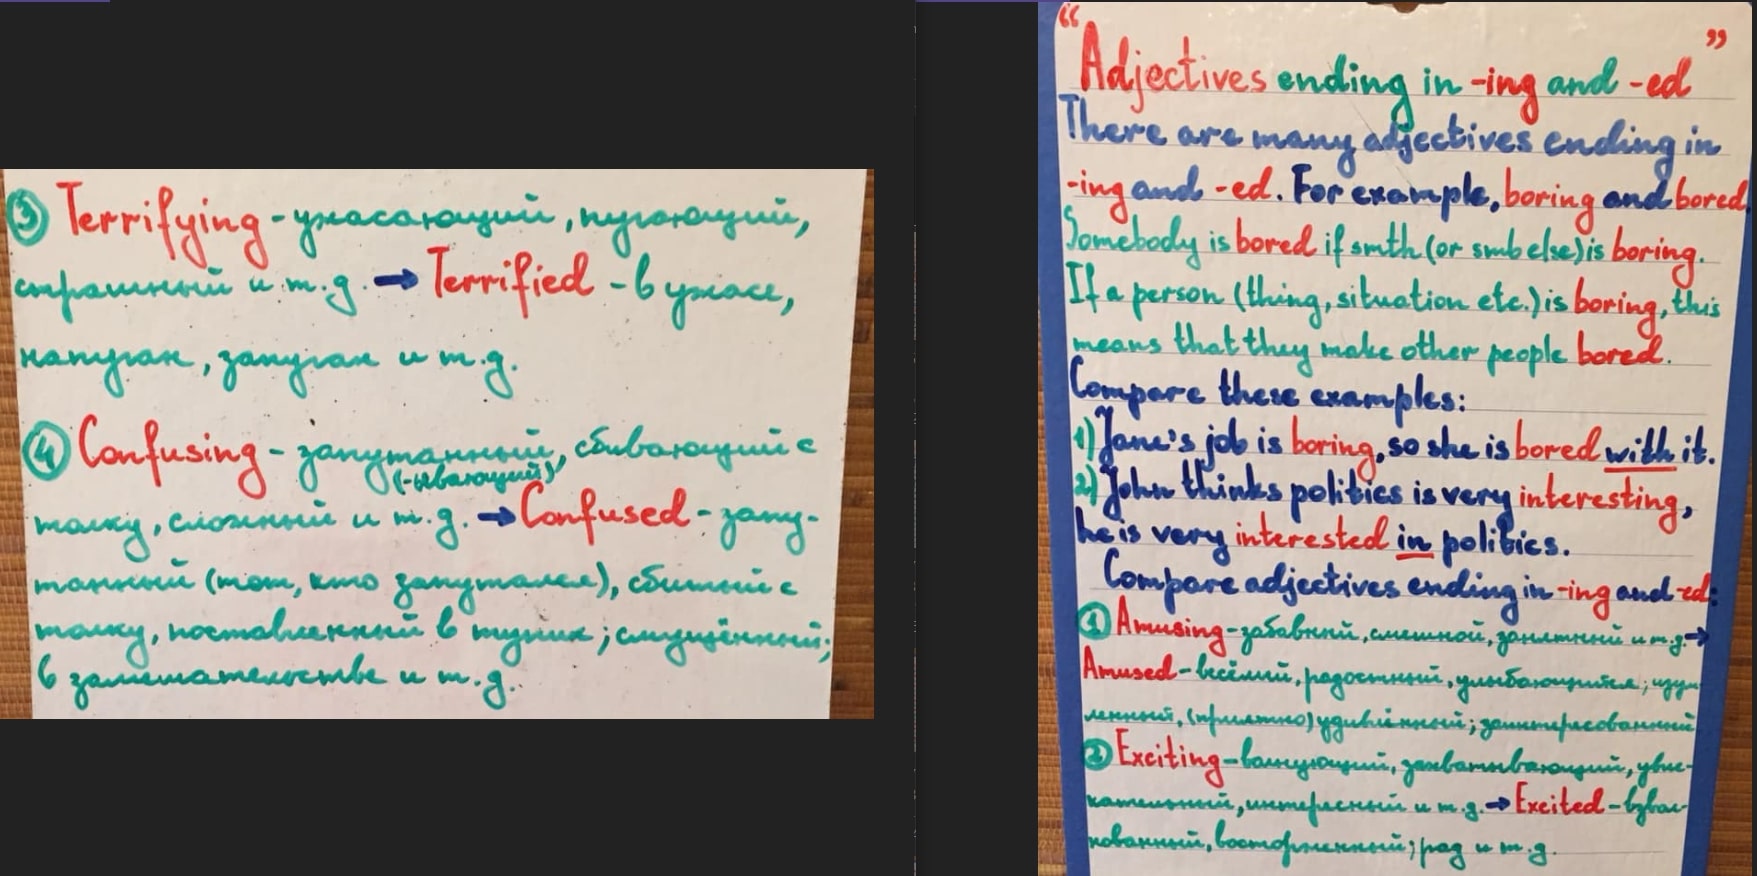 ③ Terrifying - ужасающий, пугающий,
страшный и т.д. → Terrified - в ужасе,
напуган, запуган и т.д.
④ Confusing - запутанный, сбивающий с
(-ывающий)
толку, сложный и т.д. → Confused - запу-
танный (тот, кто запутался), сбитый с
толку, поставленный в тупик; смущённый;
в замешательстве и т.д.
"Adjectives ending in -ing and -ed"
There are many adjectives ending in
-ing and -ed. For example, boring and bored.
Somebody is bored if smth (or smb else) is boring.
If a person (thing, situation etc.) is boring, this
means that they make other people bored.
Compare these examples:
1) Jane's job is boring, so she is bored with it.
2) John thinks politics is very interesting,
he is very interested in politics.
Compare adjectives ending in -ing and -ed:
① Amusing - забавный, смешной, занятный и т.д. →
Amused - весёлый, радостный, улыбающийся; изум-
ленный, (приятно) удивлённый; заинтересованный
② Exciting - волнующий, захватывающий, увле-
кательный, интересный и т.д. → Excited - взвол-
нованный, восторженный; рад и т.д.